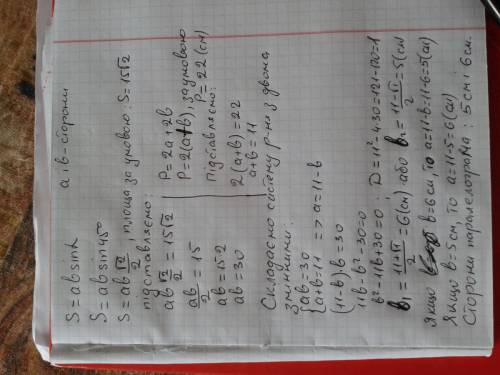 a і b - сторони
S = ab sinα
S = ab sin45°
S = ab √2/2 площа за умовою: S = 15√2
підставляємо:
ab √2/2 = 15√2
ab/2 = 15
ab = 15·2
ab = 30
P = 2a + 2b
P = 2(a+b), за умовою
P = 22 (см)
підставляємо:
2(a+b) = 22
a+b = 11
Складаємо систему р-нь з двома
змінними:
{ab = 30
{a+b = 11 => a = 11-b
(11-b)·b = 30
11b - b² - 30 = 0
b² - 11b + 30 = 0 D = 11² - 4·30 = 121 - 120 = 1
b₁ = (11+√1)/2 = 6 (см) або b₂ = (11-√1)/2 = 5 (см)
Якщо b = 6 см, то a = 11-b = 11-6 = 5 (см)
Якщо b = 5 см, то a = 11-5 = 6 (см)
Сторони паралелограма: 5 см і 6 см.